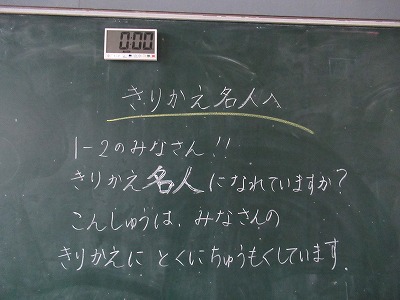 000
きりかえ名人へ
1-2のみなさん!!
きりかえ名人になれていますか?
こんしゅうは、みなさんの
きりかえに とくにちゅうもくしています。